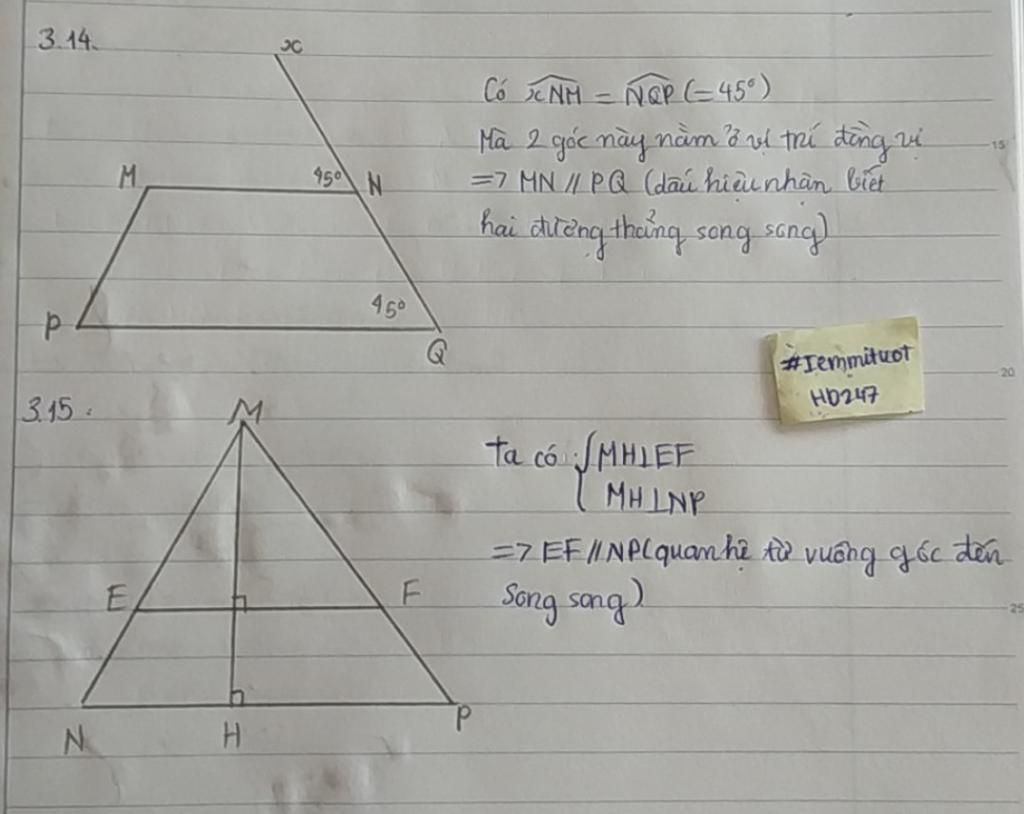 3.14.
x
Có xNM = NQP (=45°)
Mà 2 góc này nằm ở vị trí đồng vị
M 45° N
=> MN // PQ (dấu hiệu nhận biết
hai đường thẳng song song)
45°
P
Q
#Iemmituot
HD247
3.15.
M
Ta có: { MH⊥EF
MH⊥NP
=> EF // NP (quan hệ từ vuông góc đến
song song)
E F
N H P
15
20
25